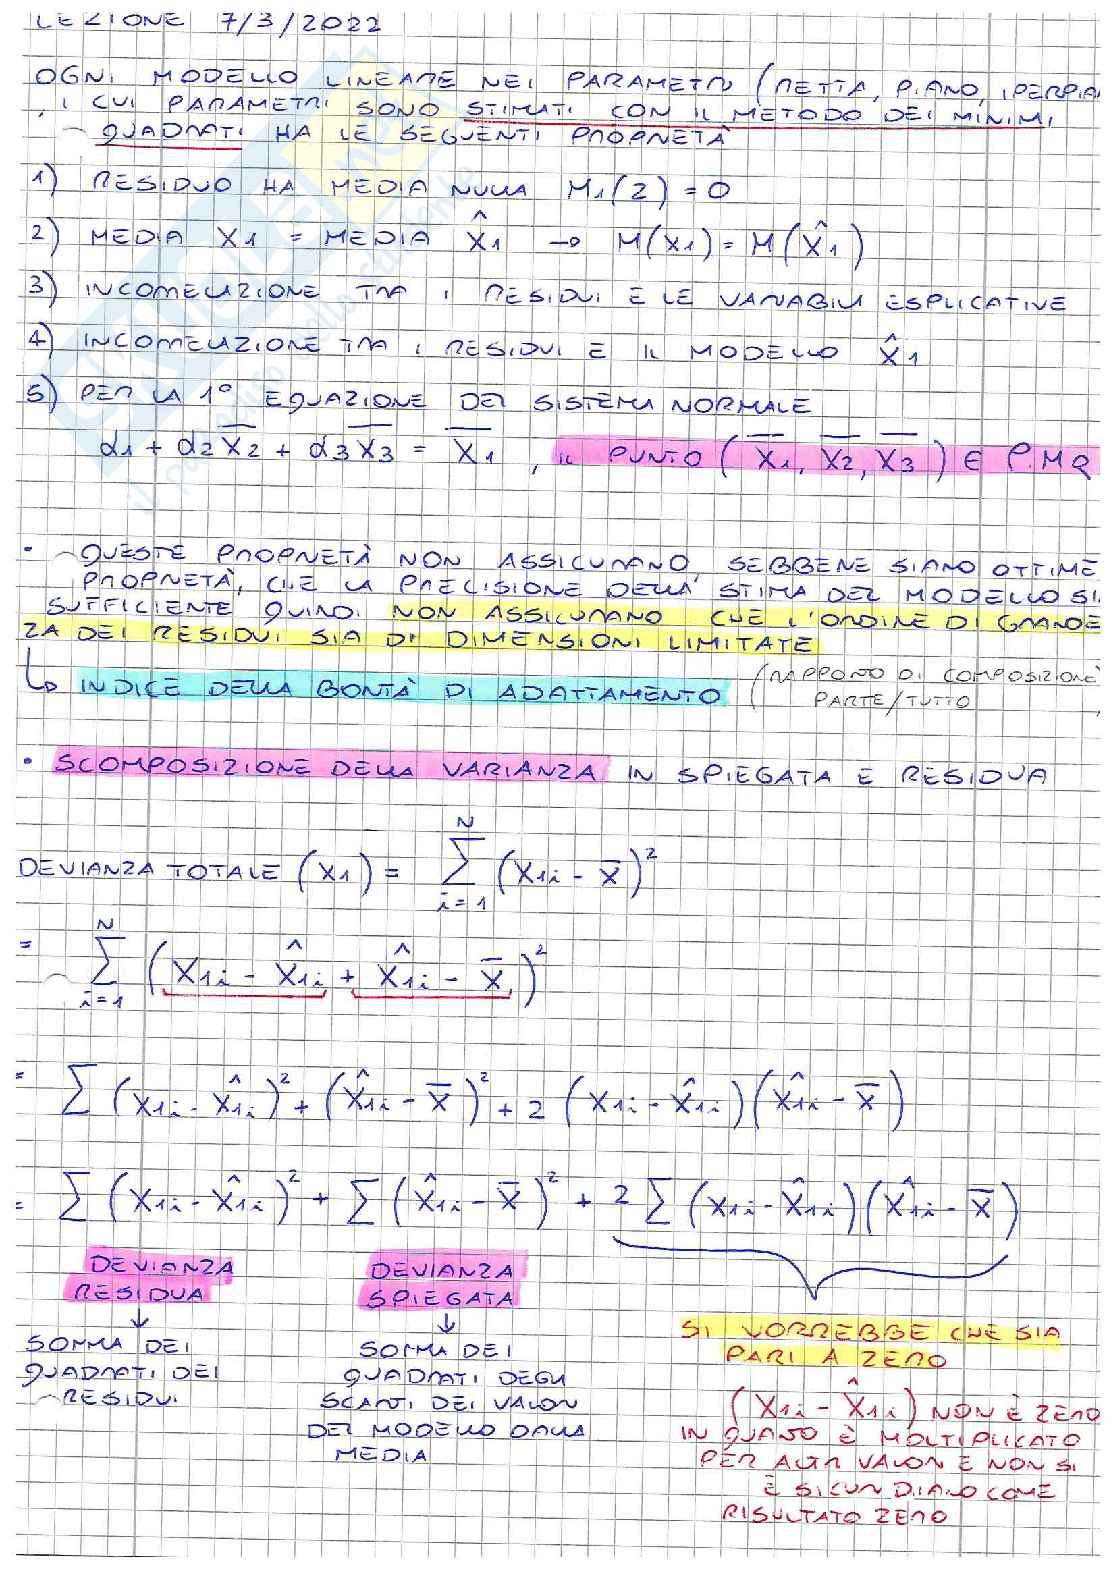 LEZIONE 7/3/2022
OGNI MODELLO LINEARE NEI PARAMETRI (RETTA, PIANO, IPERPIA
, I CUI PARAMETRI SONO STIMATI CON IL METODO DEI MINIMI
QUADRATI HA LE SEGUENTI PROPRIETÀ
1) RESIDUO HA MEDIA NULLA M1(Z) = 0
2) MEDIA X1 = MEDIA X̂1 → M(X1) = M(X̂1)
3) INCORRELAZIONE TRA I RESIDUI E LE VARIABILI ESPLICATIVE
4) INCORRELAZIONE TRA I RESIDUI E IL MODELLO X̂1
5) PER LA 1° EQUAZIONE DEL SISTEMA NORMALE
α1 + α2 X̅2 + α3 X̅3 = X̅1 , IL PUNTO (X̅1, X̅2, X̅3) ∈ P.MQ
• QUESTE PROPRIETÀ NON ASSICURANO, SEBBENE SIANO OTTIME
PROPRIETÀ, CHE LA PRECISIONE DELLA STIMA DEL MODELLO SI
SUFFICIENTE QUINDI NON ASSICURANO CHE L'ORDINE DI GRANDE
ZA DEI RESIDUI SIA DI DIMENSIONI LIMITATE
↳ INDICE DELLA BONTÀ DI ADATTAMENTO (RAPPORTO DI COMPOSIZIONE
PARTE/TUTTO
• SCOMPOSIZIONE DELLA VARIANZA IN SPIEGATA E RESIDUA
DEVIANZA TOTALE (X1) = ∑_{i=1}^{N} (X1i - X̅)²
= ∑_{i=1}^{N} (X1i - X̂1i + X̂1i - X̅)²
= ∑ (X1i - X̂1i)² + (X̂1i - X̅)² + 2 (X1i - X̂1i)(X̂1i - X̅)
= ∑ (X1i - X̂1i)² + ∑ (X̂1i - X̅)² + 2 ∑ (X1i - X̂1i)(X̂1i - X̅)
DEVIANZA
RESIDUA
↓
SOMMA DEI
QUADRATI DEI
RESIDUI
DEVIANZA
SPIEGATA
↓
SOMMA DEI
QUADRATI DEGLI
SCARTI DEI VALORI
DEL MODELLO DALLA
MEDIA
SI VORREBBE CHE SIA
PARI A ZERO
(X1i - X̂1i) NON È ZERO
IN QUANTO È MOLTIPLICATO
PER ALTRI VALORI E NON SI
È SICURI DIANO COME
RISULTATO ZERO